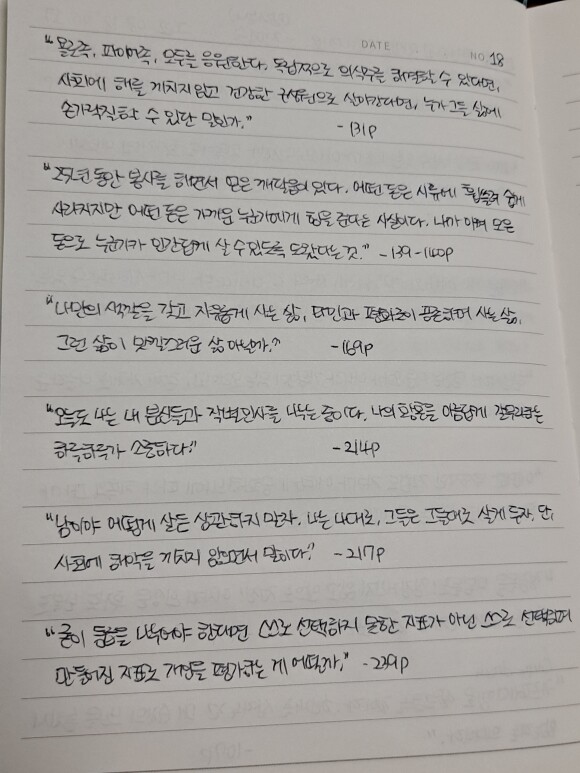 DATE NO. 18
"욜로족, 파이어족, 모두를 응원한다. 독립적으로 의식주를 해결할 수 있다면,
사회에 해를 끼치지 않고 건강한 구성원으로 살아간다면, 누가 그들 삶에
손가락질할 수 있단 말인가." -131p
"25년 동안 봉사를 하면서 얻은 깨달음이 있다. 어떤 돈은 시류에 휩쓸려 쉽게
사라지지만 어떤 돈은 가까운 누군가에게 힘을 준다는 사실이다. 내가 아껴 모은
돈으로 누군가가 인간답게 살 수 있도록 도왔다는 것." -139-140p
"나만의 색깔을 갖고 자유롭게 사는 삶, 타인과 평화로이 공존하며 사는 삶,
그런 삶이 맛깔스러운 삶 아닐까." -169p
"오늘도 나는 내 분신들과 작별인사를 나누는 중이다. 나의 황혼을 아름답게 갈무리하는
하루하루가 소중하다." -214p
"남이야 어떻게 살든 상관하지 말자. 나는 나대로, 그들은 그들대로 살게 두자. 단,
사회에 해악을 끼치지 않으면서 말이다." -217p
"굳이 들을 나누어야 한다면 스스로 선택하지 못한 지표가 아닌 스스로 선택하며
만들어진 지표로 개인을 평가하는 게 어떨까." -239p